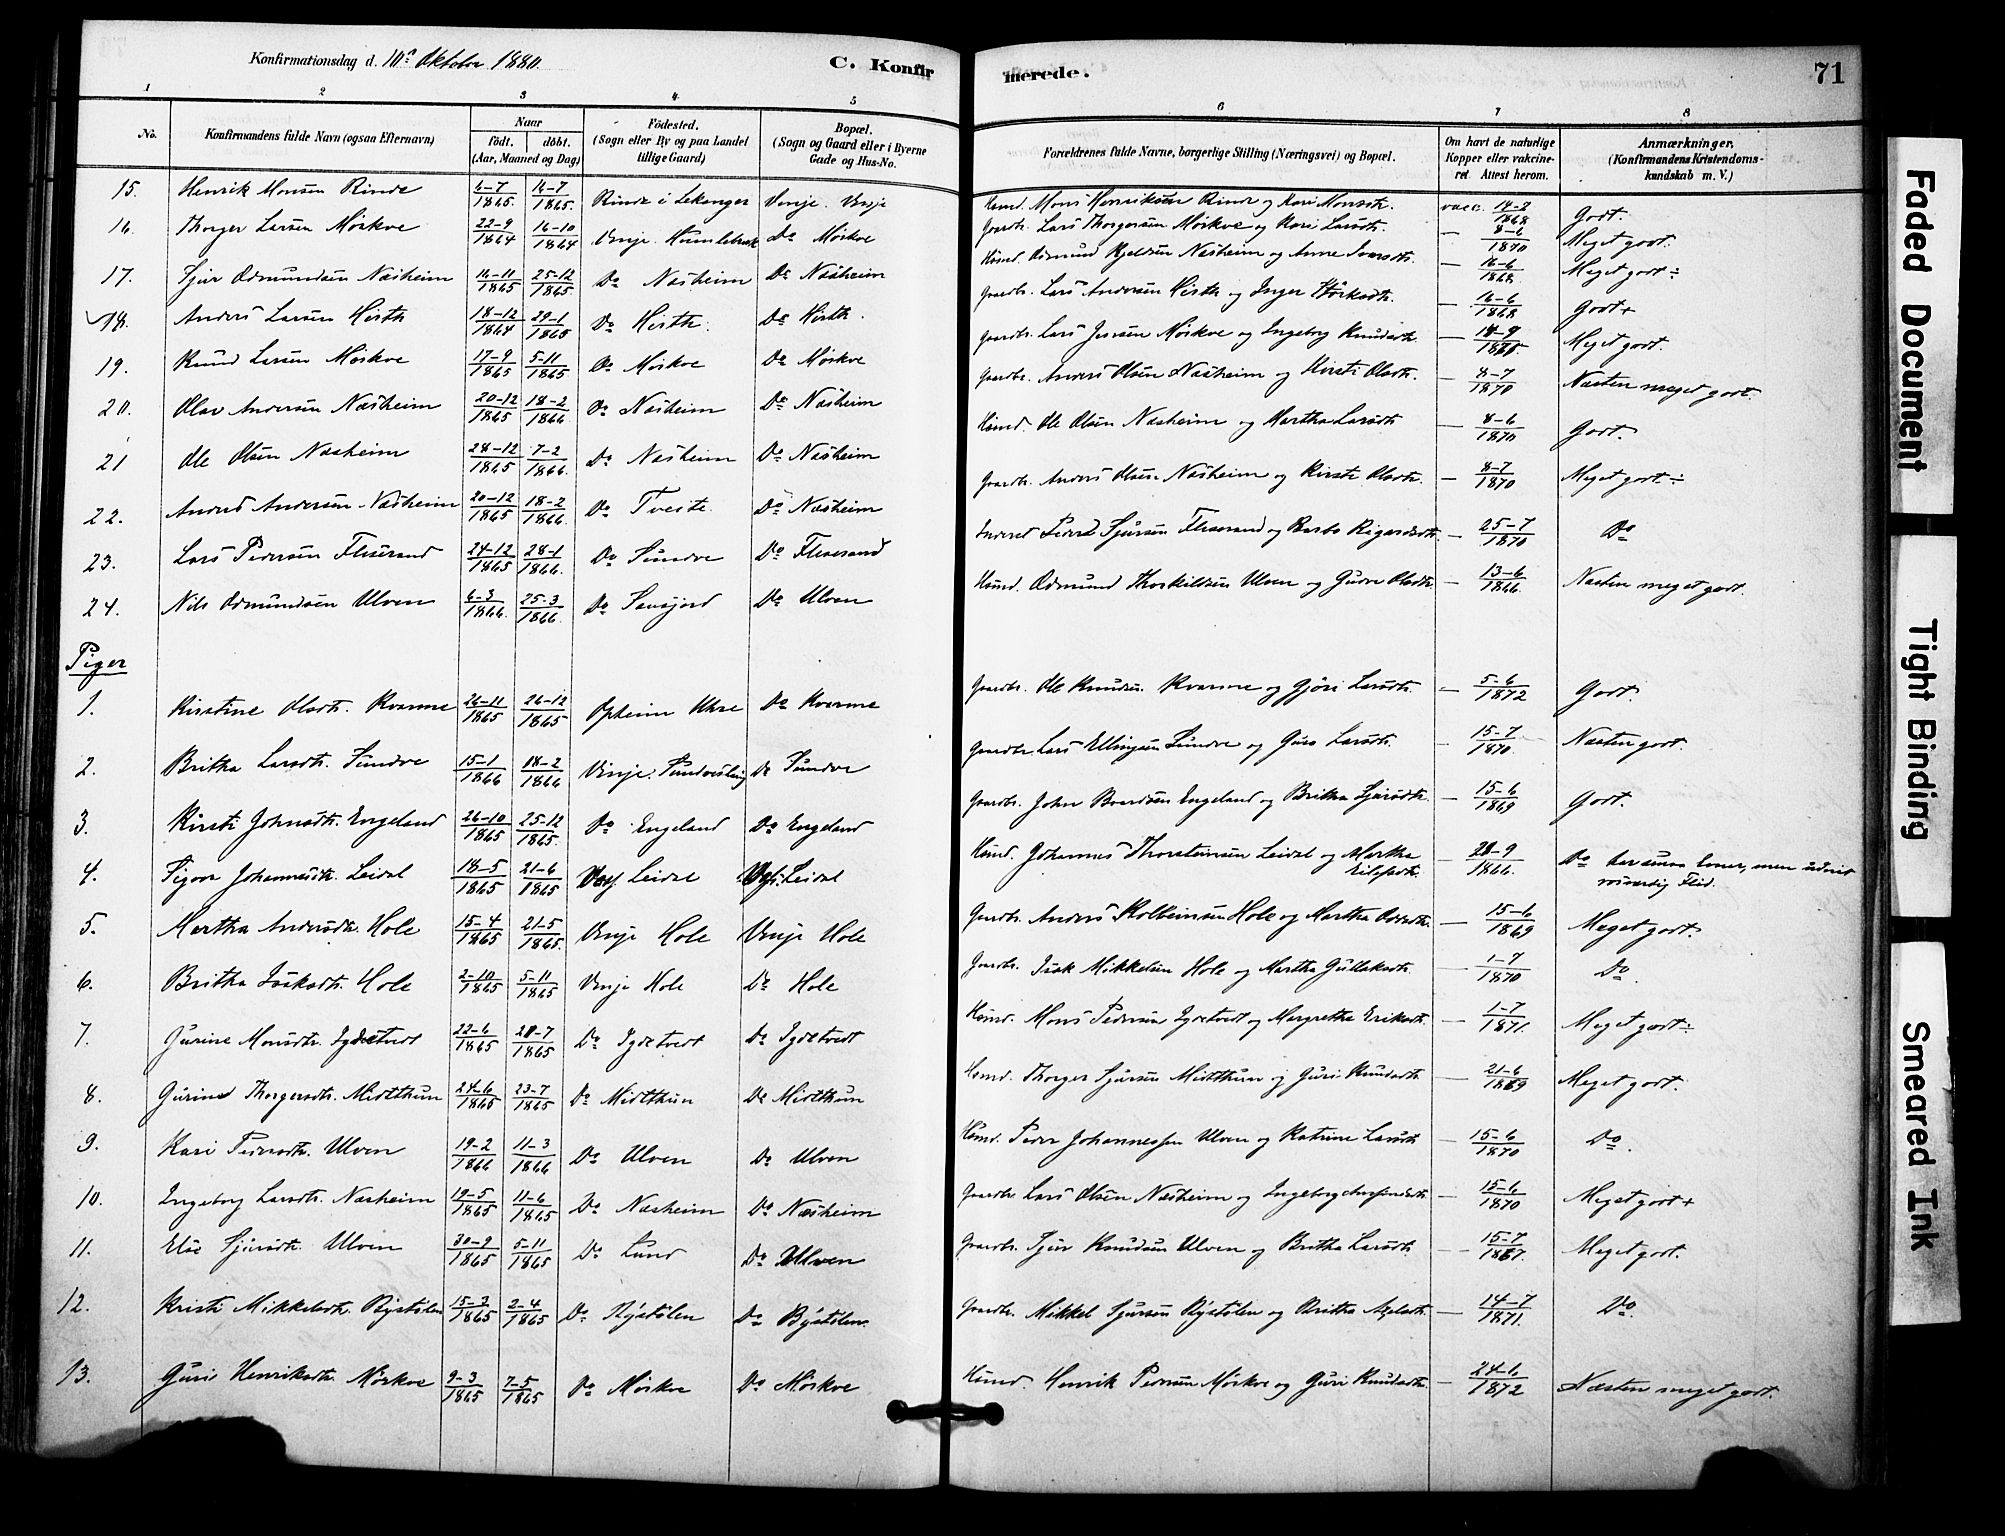 Konfirmationsdag d. 10de Oktober 1880.
C. Konfirmerede.
71
1 2 3 4 5 6 7 8
No.
Konfirmandens fulde Navn (ogsaa Efternavn)
Naar
født. døbt.
(Aar, Maaned og Dag)
Fødested.
(Sogn eller By og paa Landet
tillige Gaard)
Bopæl.
(Sogn og Gaard eller i Byerne
Gade og Hus-No.
Forældrenes fulde Navne, borgerlige Stilling (Næringsvei) og Bopæl.
Om havt de naturlige
Kopper eller vakcineret. Attest herom.
Anmærkninger.
(Konfirmandens Kristendomskundskab m. V.)
15. Henrik Monsen Rinde 6-7 1865. 16-7 1865. Rinde i Lekanger Vinje. Vinje Husmd. Mons Henriksen Rinde og Kari Monsdtr. vacc. 14-2 1868 Godt.
16. Thorger Larsen Mørkve 22-9 1864 16-10 1864 Vinje Do Mørkve Gaardbr. Lars Thorgersen Mørkve og Kari Larsdtr. — 8-6 1870 Meget godt.
17. Sjur Odmundsen Næsheim 16-11 1865 25-12 1865 Do Næsheim Do Næsheim Husmd. Odmund Næsheim og Anne Ivarsdtr. — 16-6 1868. Meget godt ÷
18. Anders Larsen Hirth 18-12 1864 29-1 1865 Do Hirth. Do Hirth. Gaardbr. Lars Andersen Hirth og Inger — 16-6 1868 Godt +
19. Knud Larsen Mørkve 17-9 1865 5-11 1865 Do Mørkve Do Mørkve Gaardbr. Lars Mørkve og Ingeborg Knudsdtr. — 14-9 Meget godt.
20. Olav Andersen Næsheim 20-12 1865 18-2 1866 Do Næsheim Do Næsheim Gaardbr. Anders Olsen Næsheim og Kirsti Olsdtr. — 8-7 1870 Næsten meget godt.
21 Ole Olsen Næsheim 28-12 1865 7-2 1866. Do Næsheim Do Næsheim Husmd. Ole Olsen Næsheim og Martha Larsdtr — 8-6 1870 Godt.
22. Anders Andersen Næsheim 20-12 1865 18-2 1866. Do Tveite. Do Næsheim Gaardbr. Anders Olsen Næsheim og Kirsti Olsdtr. — 8-7 1870 Meget godt ÷
23. Lars Pedersen Flisrand 24-12 1865 28-1 1866. Do Sundve Do Flisrand Inderst Peder Sjursen Flisrand og Barbo — 25-7 1870 Do
24. Nils Odmundsen Ulven 6-3 1866. 25-3 1866 Do Do Ulven Husmd. Odmund Thorkildsen Ulven og Guro Olsdtr. — 13-6 1866. Næsten meget godt.
Piger
1. Kirstine Olsdtr. Kvarme 26-11 1865 26-12 1865 Opheim Do Kvarme Gaardbr. Ole Knudsen Kvarme og Gjøri Larsdtr. — 5-6 1872 Godt.
2. Britha Larsdtr. Sundve 15-1 1866 18-2 1866 Vinje. Do Sundve Gaardbr Lars Ellingsen Sundve og Guro Larsdtr. — 15-7 1870. Næsten godt.
3. Kirsti Johnsdtr. Engeland 26-10 1865 25-12 1865. Do Engeland Do Engeland Gaardbr. John Baardsen Engeland og Britha Sjursdtr. — 15-6 1869 Godt.
4. Sigva Johannesdtr. Leidal 18-5 1865 21-6 1865 Leidal Leidal Husmd. Johannes Thorsteinsen Leidal og Martha Eilifsdtr. — 28-9 1866. Do har smaa Evner, men udvist rosværdig Flid.
5. Martha Andersdtr. Hole 15-4 1865 21-5 1865. Vinje Hole Vinje Hole Gaardbr. Anders Kolbeinsen Hole og Martha — 15-6 1869 Meget godt.
6. Britha Isaksdtr. Hole 2-10 1865 5-11 1865 Vinje Hole Do Hole Gaardbr. Isak Mikkelsen Hole og Martha Gullaksdtr. — 1-7 1870 Do
7. Gurine Monsdtr. Sydetvedt 22-6 1865 28-7 1865 Do Sydetvedt Do Sydetvedt Husmd. Mons Pedersen Sydetvedt og Margretha Eriksdtr. — 1-7 1871. Meget godt ÷
8. Gurine Thorgersdtr. Midtthun 24-6 1865 23-7 1865 Do Midtthun Do Midtthun Husmd. Thorger Sjursen Midtthun og Guri Knudsdtr. — 21-6 1869 Meget godt.
9. Kari Pedersdtr. Ulven 19-2 1866 11-3 1866 Do Ulven Do Ulven Husmd. Peder Johannessen Ulven og Katrine Larsdtr. — 15-6 1870 Do.
10. Ingeborg Larsdtr. Næsheim 19-5 1865 11-6 1865 Do Næsheim Do Næsheim Gaardbr. Lars Olsen Næsheim og Ingeborg — 15-6 1870 Meget godt +
11. Else Sjursdtr. Ulven 30-9 1865 5-11 1865 Do Lund Do Ulven Gaardbr. Sjur Knudsen Ulven og Britha Larsdtr. — 15-7 1867. Meget godt.
12. Kristi Mikkelsdtr. Bystølen 15-3 1865 2-4 1865 Do Bystølen Do Bystølen. Gaardbr. Mikkel Sjursen Bystølen og Britha Axelsdtr. — 14-7 1871. Do.
13. Guri Henriksdtr. Mørkve 9-3 1865 7-5 1865 Do Mørkve Do Mørkve Husmd. Henrik Pedersen Mørkve og Guri Knudsdtr. — 24-6 1872 Næsten meget godt.
Faded Document
Tight Binding
Smeared Ink